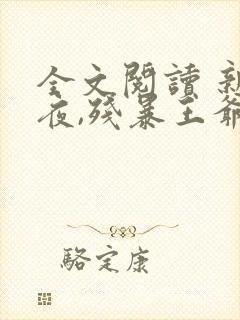 全文閱讀 新
夜,殘暴王爺
駱定康